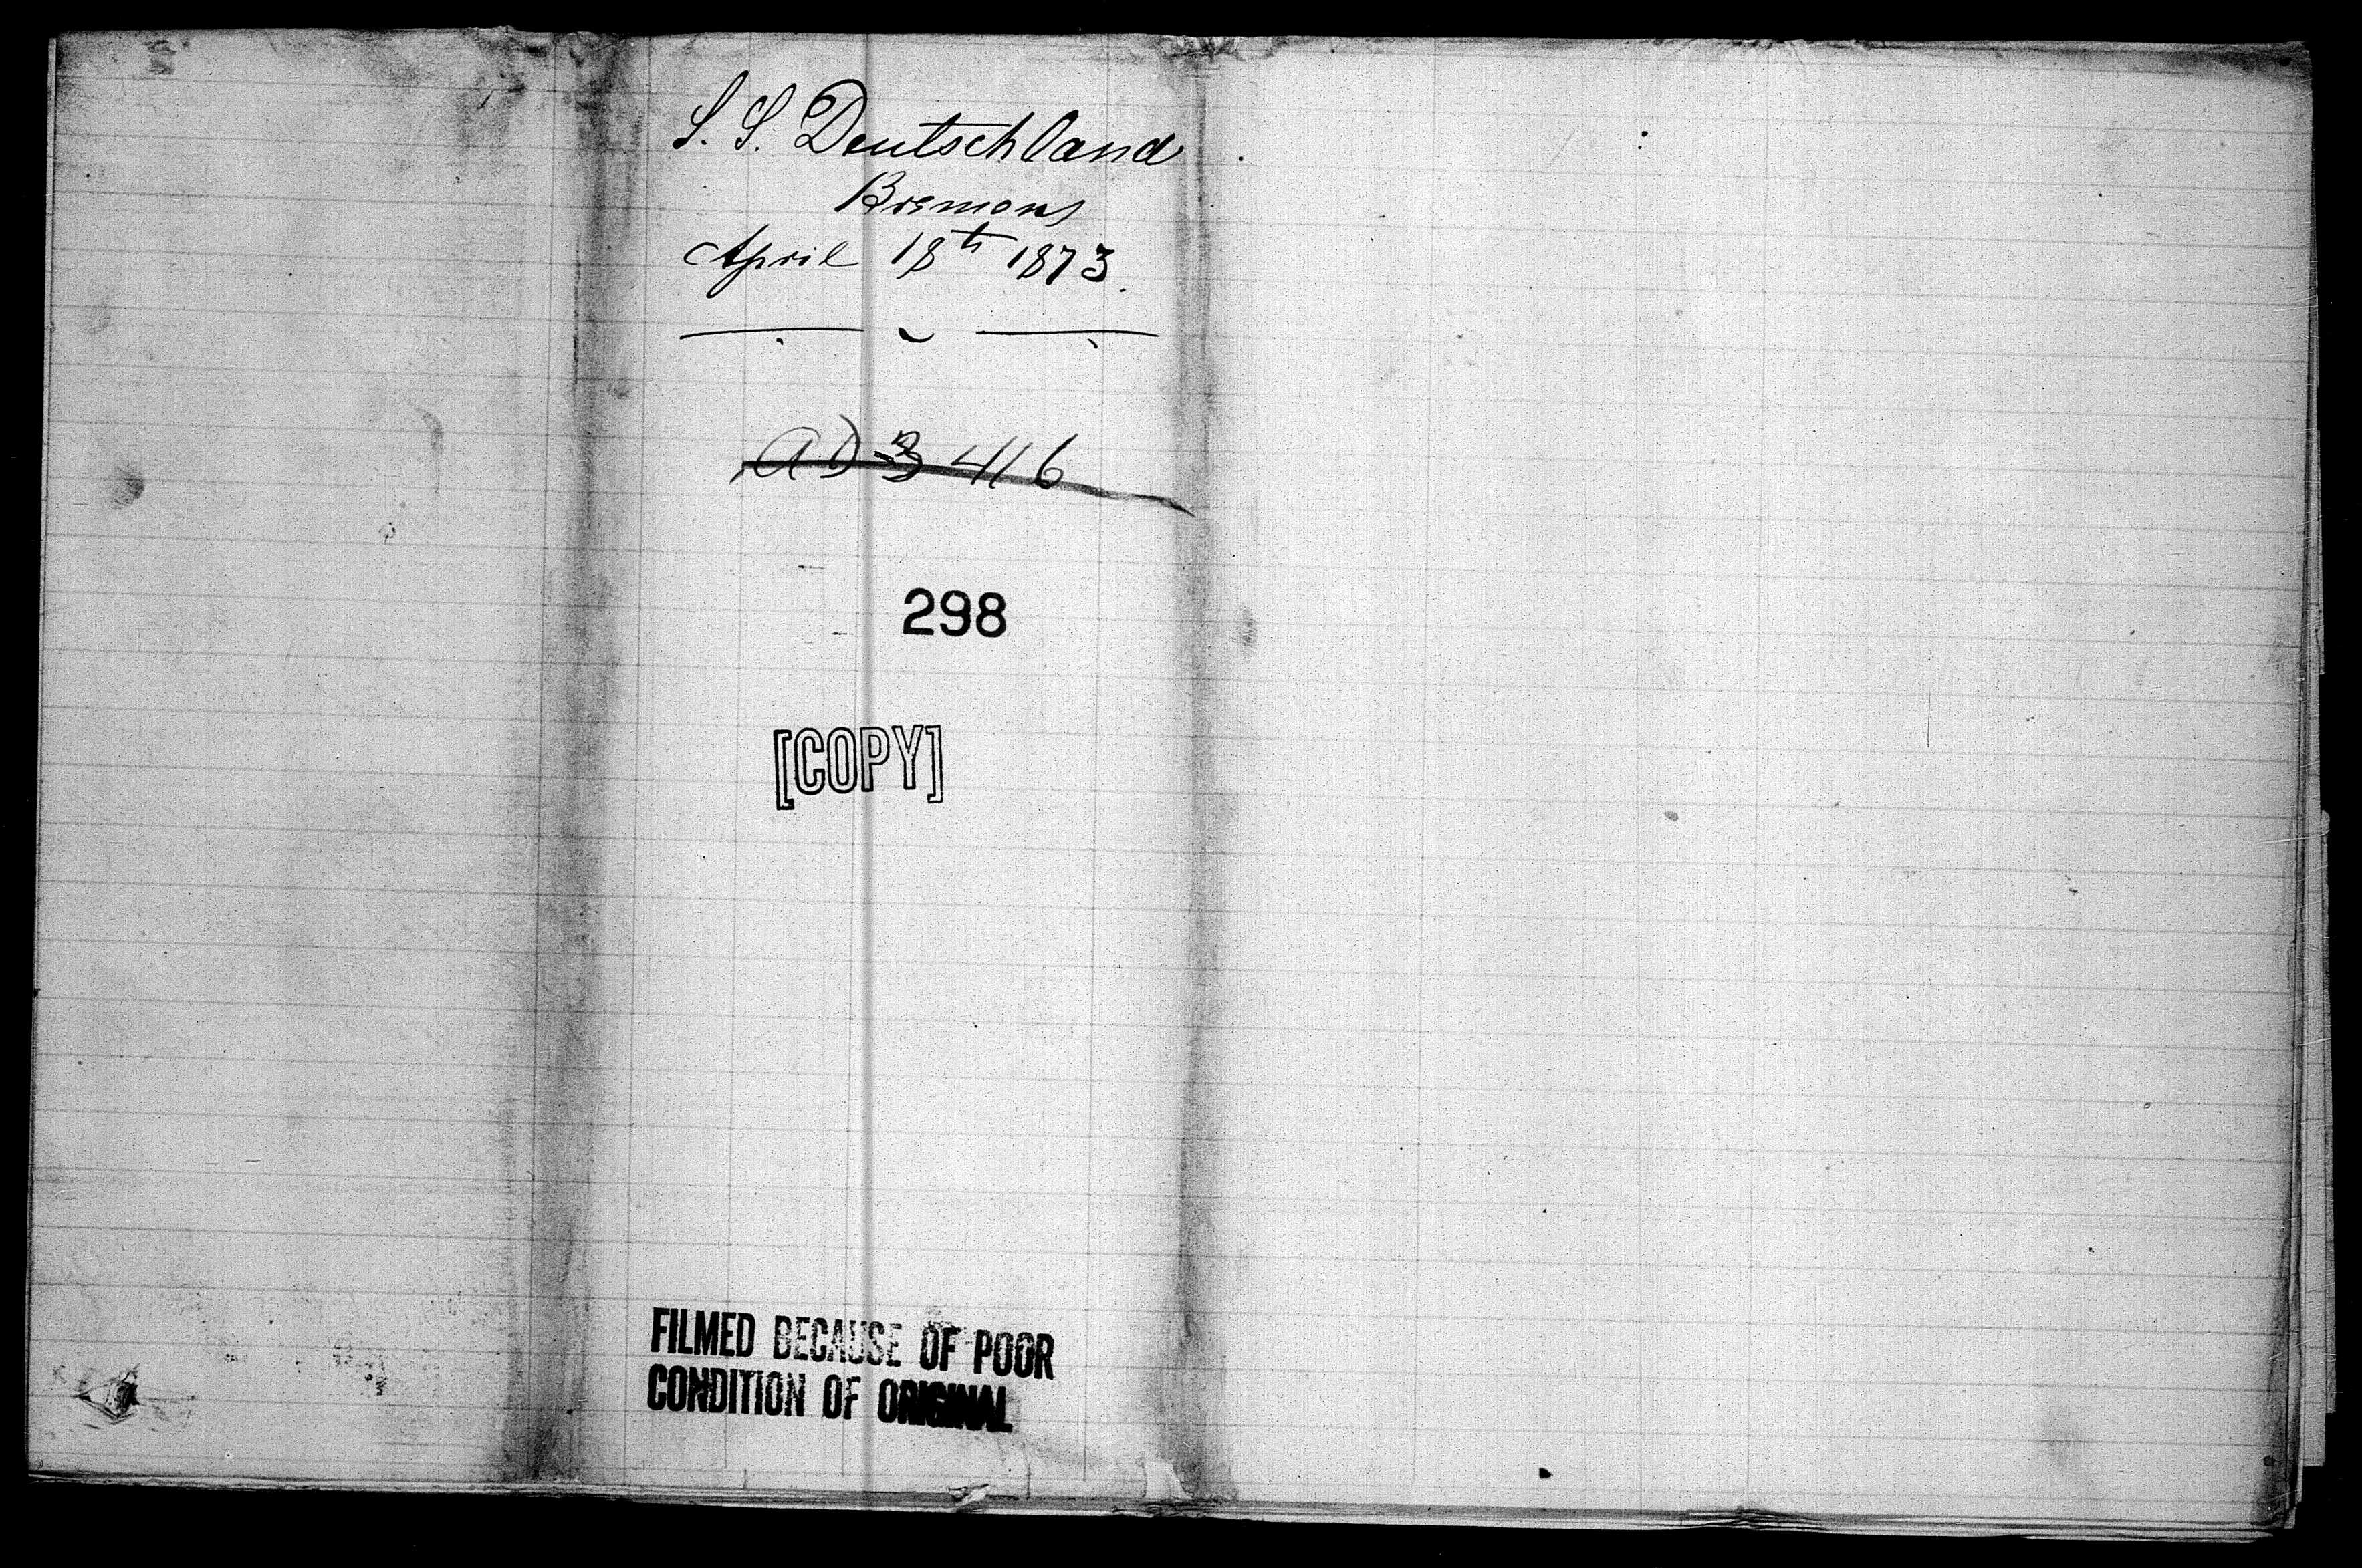 S. S. Deutschland
Bremen
April 18th 1873.
AD 3 416
298
[COPY]
FILMED BECAUSE OF POOR
CONDITION OF ORIGINAL